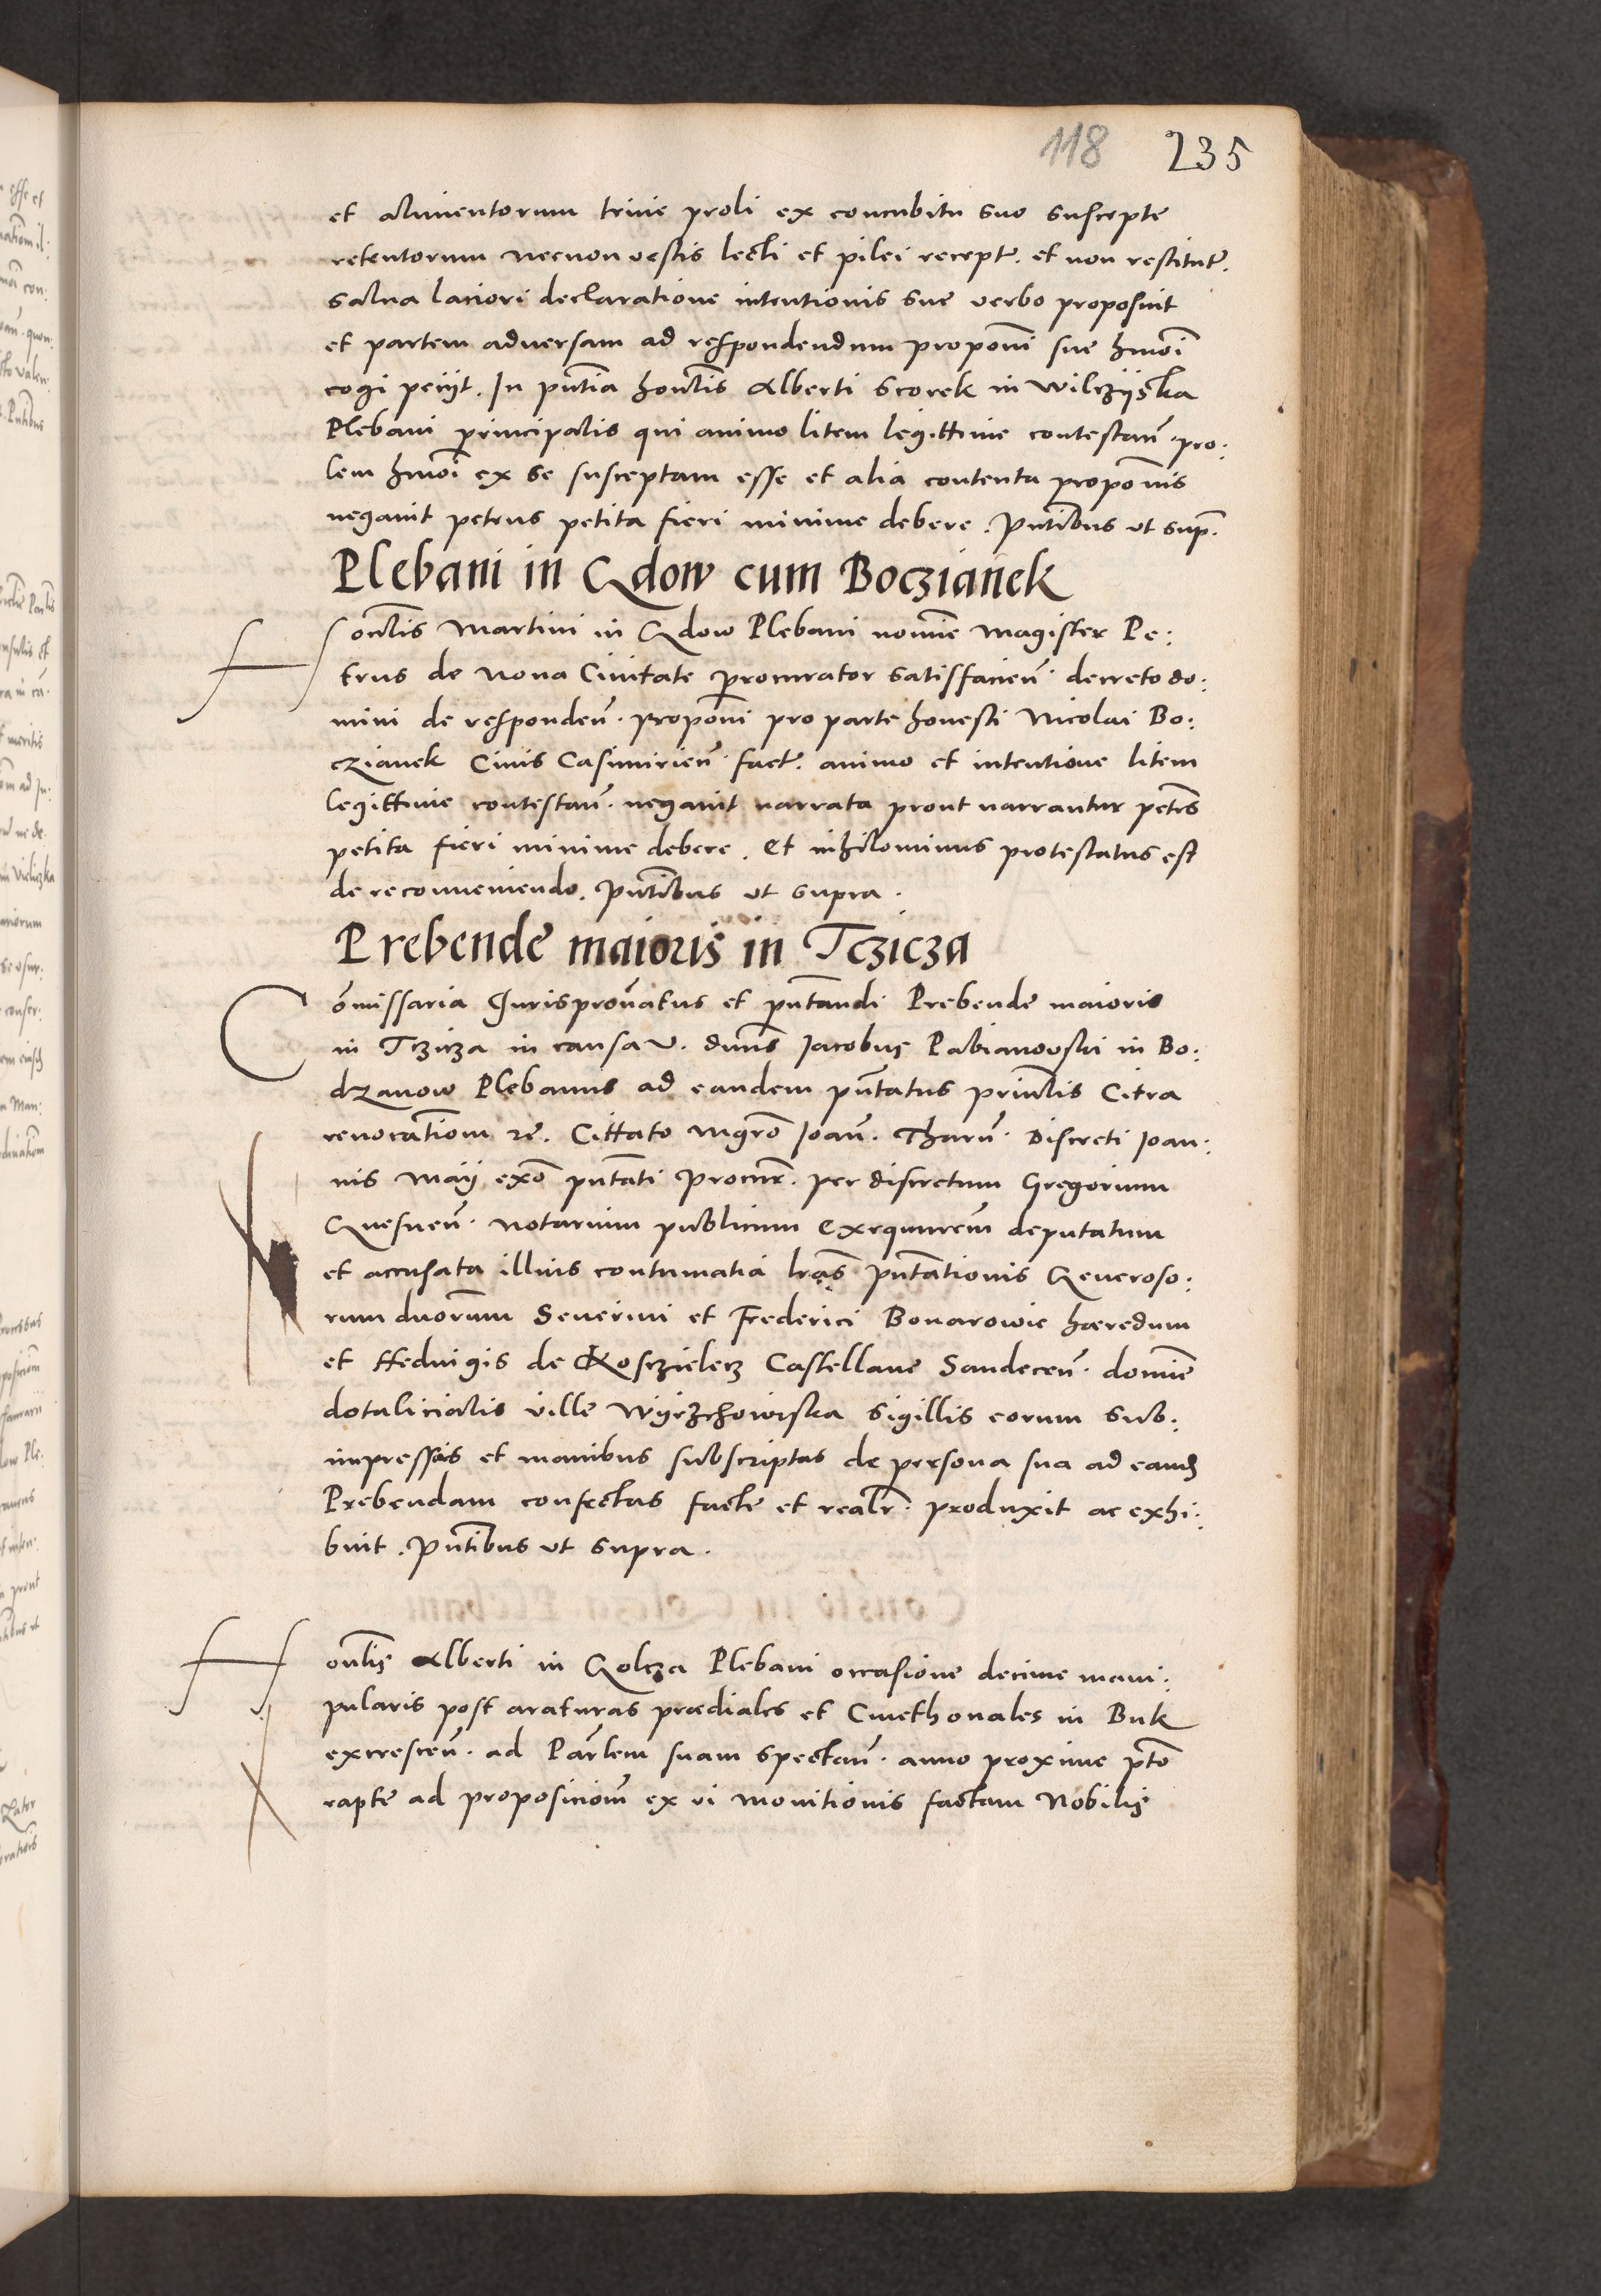 118 235
et alimentorum trime proli ex concubitu suo suscepte
retentorum necnon vestis lecti et pilei recept. et non restitut.
salua laciori declaratione intentionis sue verbo proposuit
et partem aduersam ad respondendum propõni sue hmõi
cogi petyt. In pntia honlis Alberti Scorek in Wilczyska
Plebani principalis qui animo litem legittime contestañ. pro:
lem hmõi ex se susceptam esse et alia contenta propõnis
negauit petens petita fieri minime debere. Pntibus ut sup.
Plebani in Gdow cum Boczianek
Honlis Martini in Gdow Plebani nomine Magister Pe:
trus de Noua Ciuitate procurator satisfacieñ. decreto do:
mini de respondeñ. propõni pro parte honesti Nicolai Bo:
czianek Ciuis Casimirieñ. fact. animo et intentione litem
legittime contestañ. negauit narrata prout narrantur petens
petita fieri minime debere. Et nihilominus protestatus est
de reconueniendo. Pntibus ut supra.
Prebende maioris in Tczicza
Comissaria Jurispronatus et pntandi Prebende maioris
in Tczicza in causa v. dnus Jacobus Pabianowski in Bo:
dzanow Plebanus ad eandem pntatus prinlis Citra
reuocationem rc. Cittato Mgro Joañ. Tharñ. Discreti Joan:
nis Maij exo pntati Procur. per discretum Gregorium
Gnesneñ. notarium publicum Exequutrem deputatum
et accusata illius contumatia lras pntationis Generoso:
rum duorum Seuerini et Frederici Bonarowie hæredum
et Heduigis de Kosczielecz Castellane Sandeceñ. domine
dotalicialis ville Wyrzchowiska sigillis eorum sub:
impressis et manibus subscriptas de persona sua ad eand
Prebendam confectas facte et realr. produxit ac exhi:
buit. Pntibus ut supra.
Honlis Alberti in Golcza Plebani occasione decime mani:
pularis post araturas prædiales et Cmethonales in Buk
excresceñ. ad Parlem suam spectañ. anno proxime pto
rapte ad proposicionem ex vi monitionis factam Nobilis